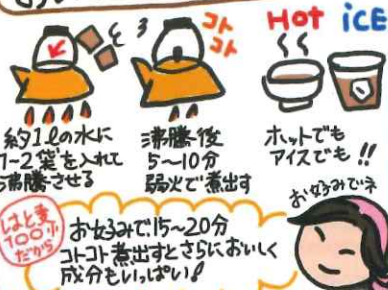 コト
コト
Hot iCE
約1ℓの水に
1~2袋を入れて
沸騰させる
沸騰後
5~10分
弱火で煮出す
ホットでも
アイスでも!!
お好みでネ
はと麦
100%
だから
お好みで15~20分
コトコト煮出すとさらにおいしく
成分もいっぱい!